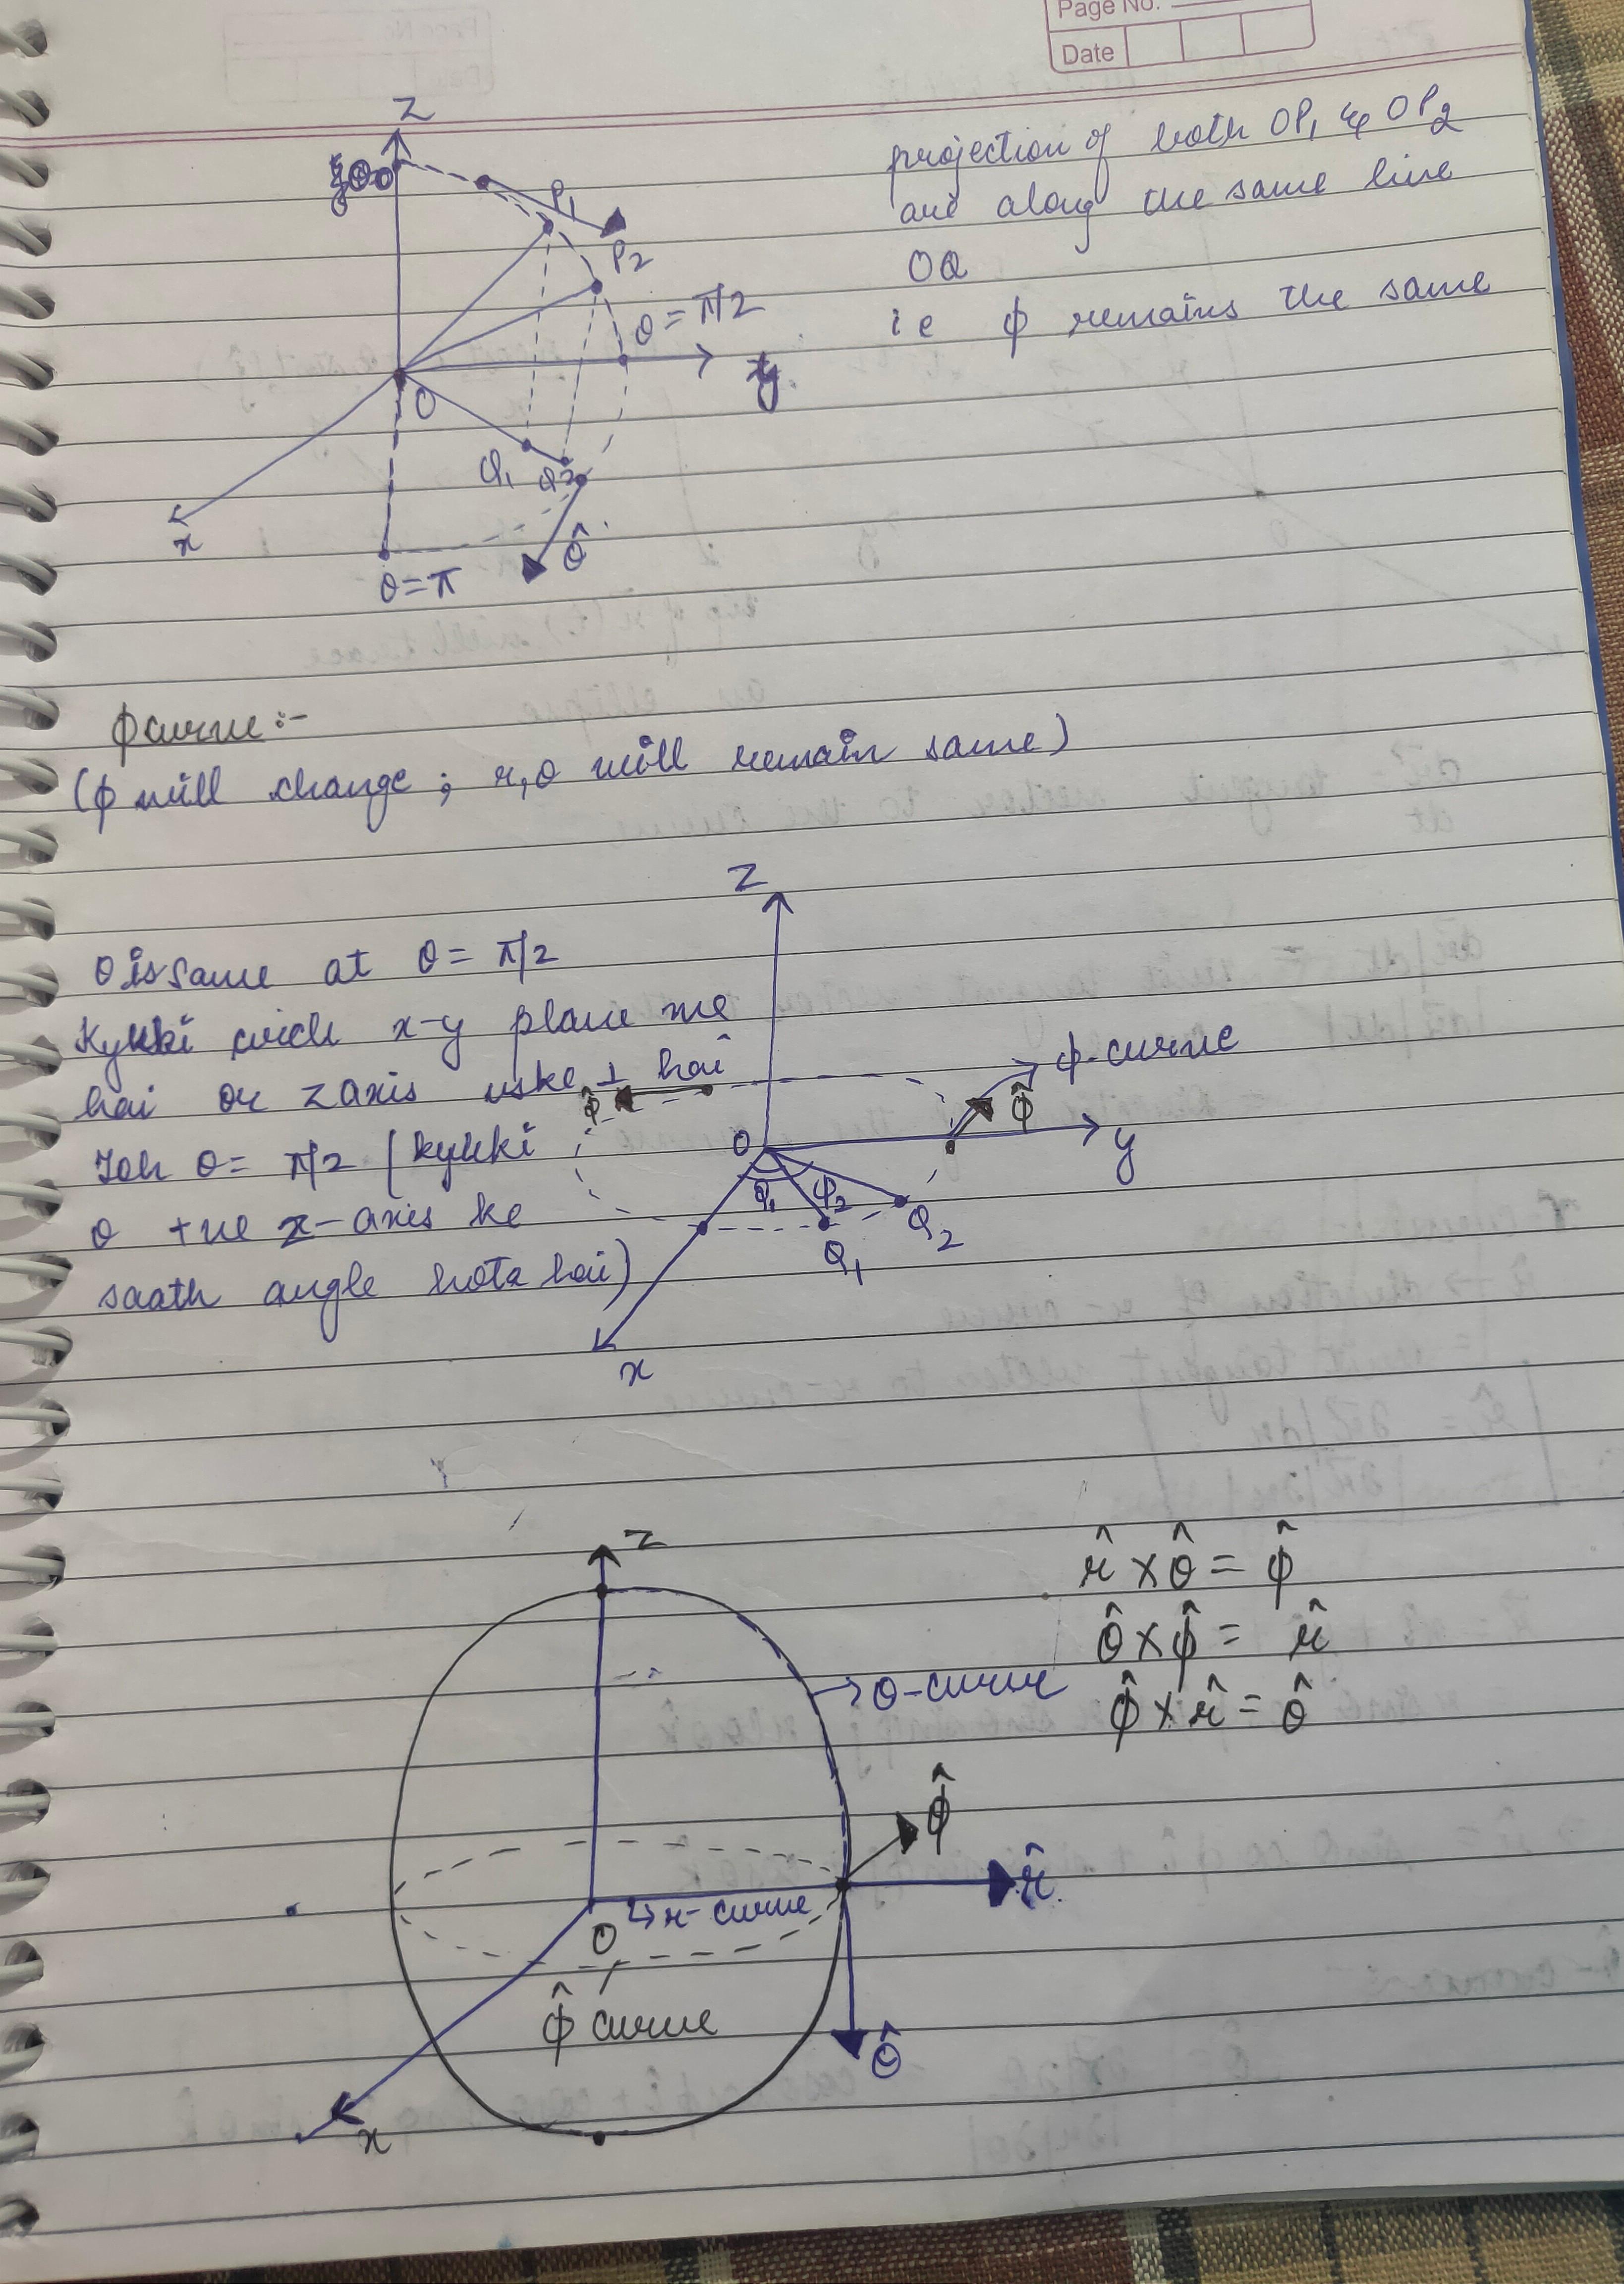 Page No.
Date
z
P₁
P₂
θ = π/2
y
O
Q₁
Q₂
x
θ̂
θ = π
projection of both OP₁ & OP₂
are along the same line
OQ
ie ϕ remains the same
ϕ curve :-
(ϕ will change ; r, θ will remain same)
θ is same at θ = π/2
Kyuki circle x-y plane me
hai or z axis uske ⊥ hai
Toh θ = π/2 (kyuki
θ +ve z-axis ke
saath angle hota hai)
z
ϕ-curve
ϕ̂
ϕ̂
O
y
ϕ₁
ϕ₂
Q₂
Q₁
x
z
r̂ × θ̂ = ϕ̂
θ̂ × ϕ̂ = r̂
ϕ̂ × r̂ = θ̂
→ θ-curve
ϕ̂
r̂
↳ r-curve
O
ϕ̂ curve
θ̂
x